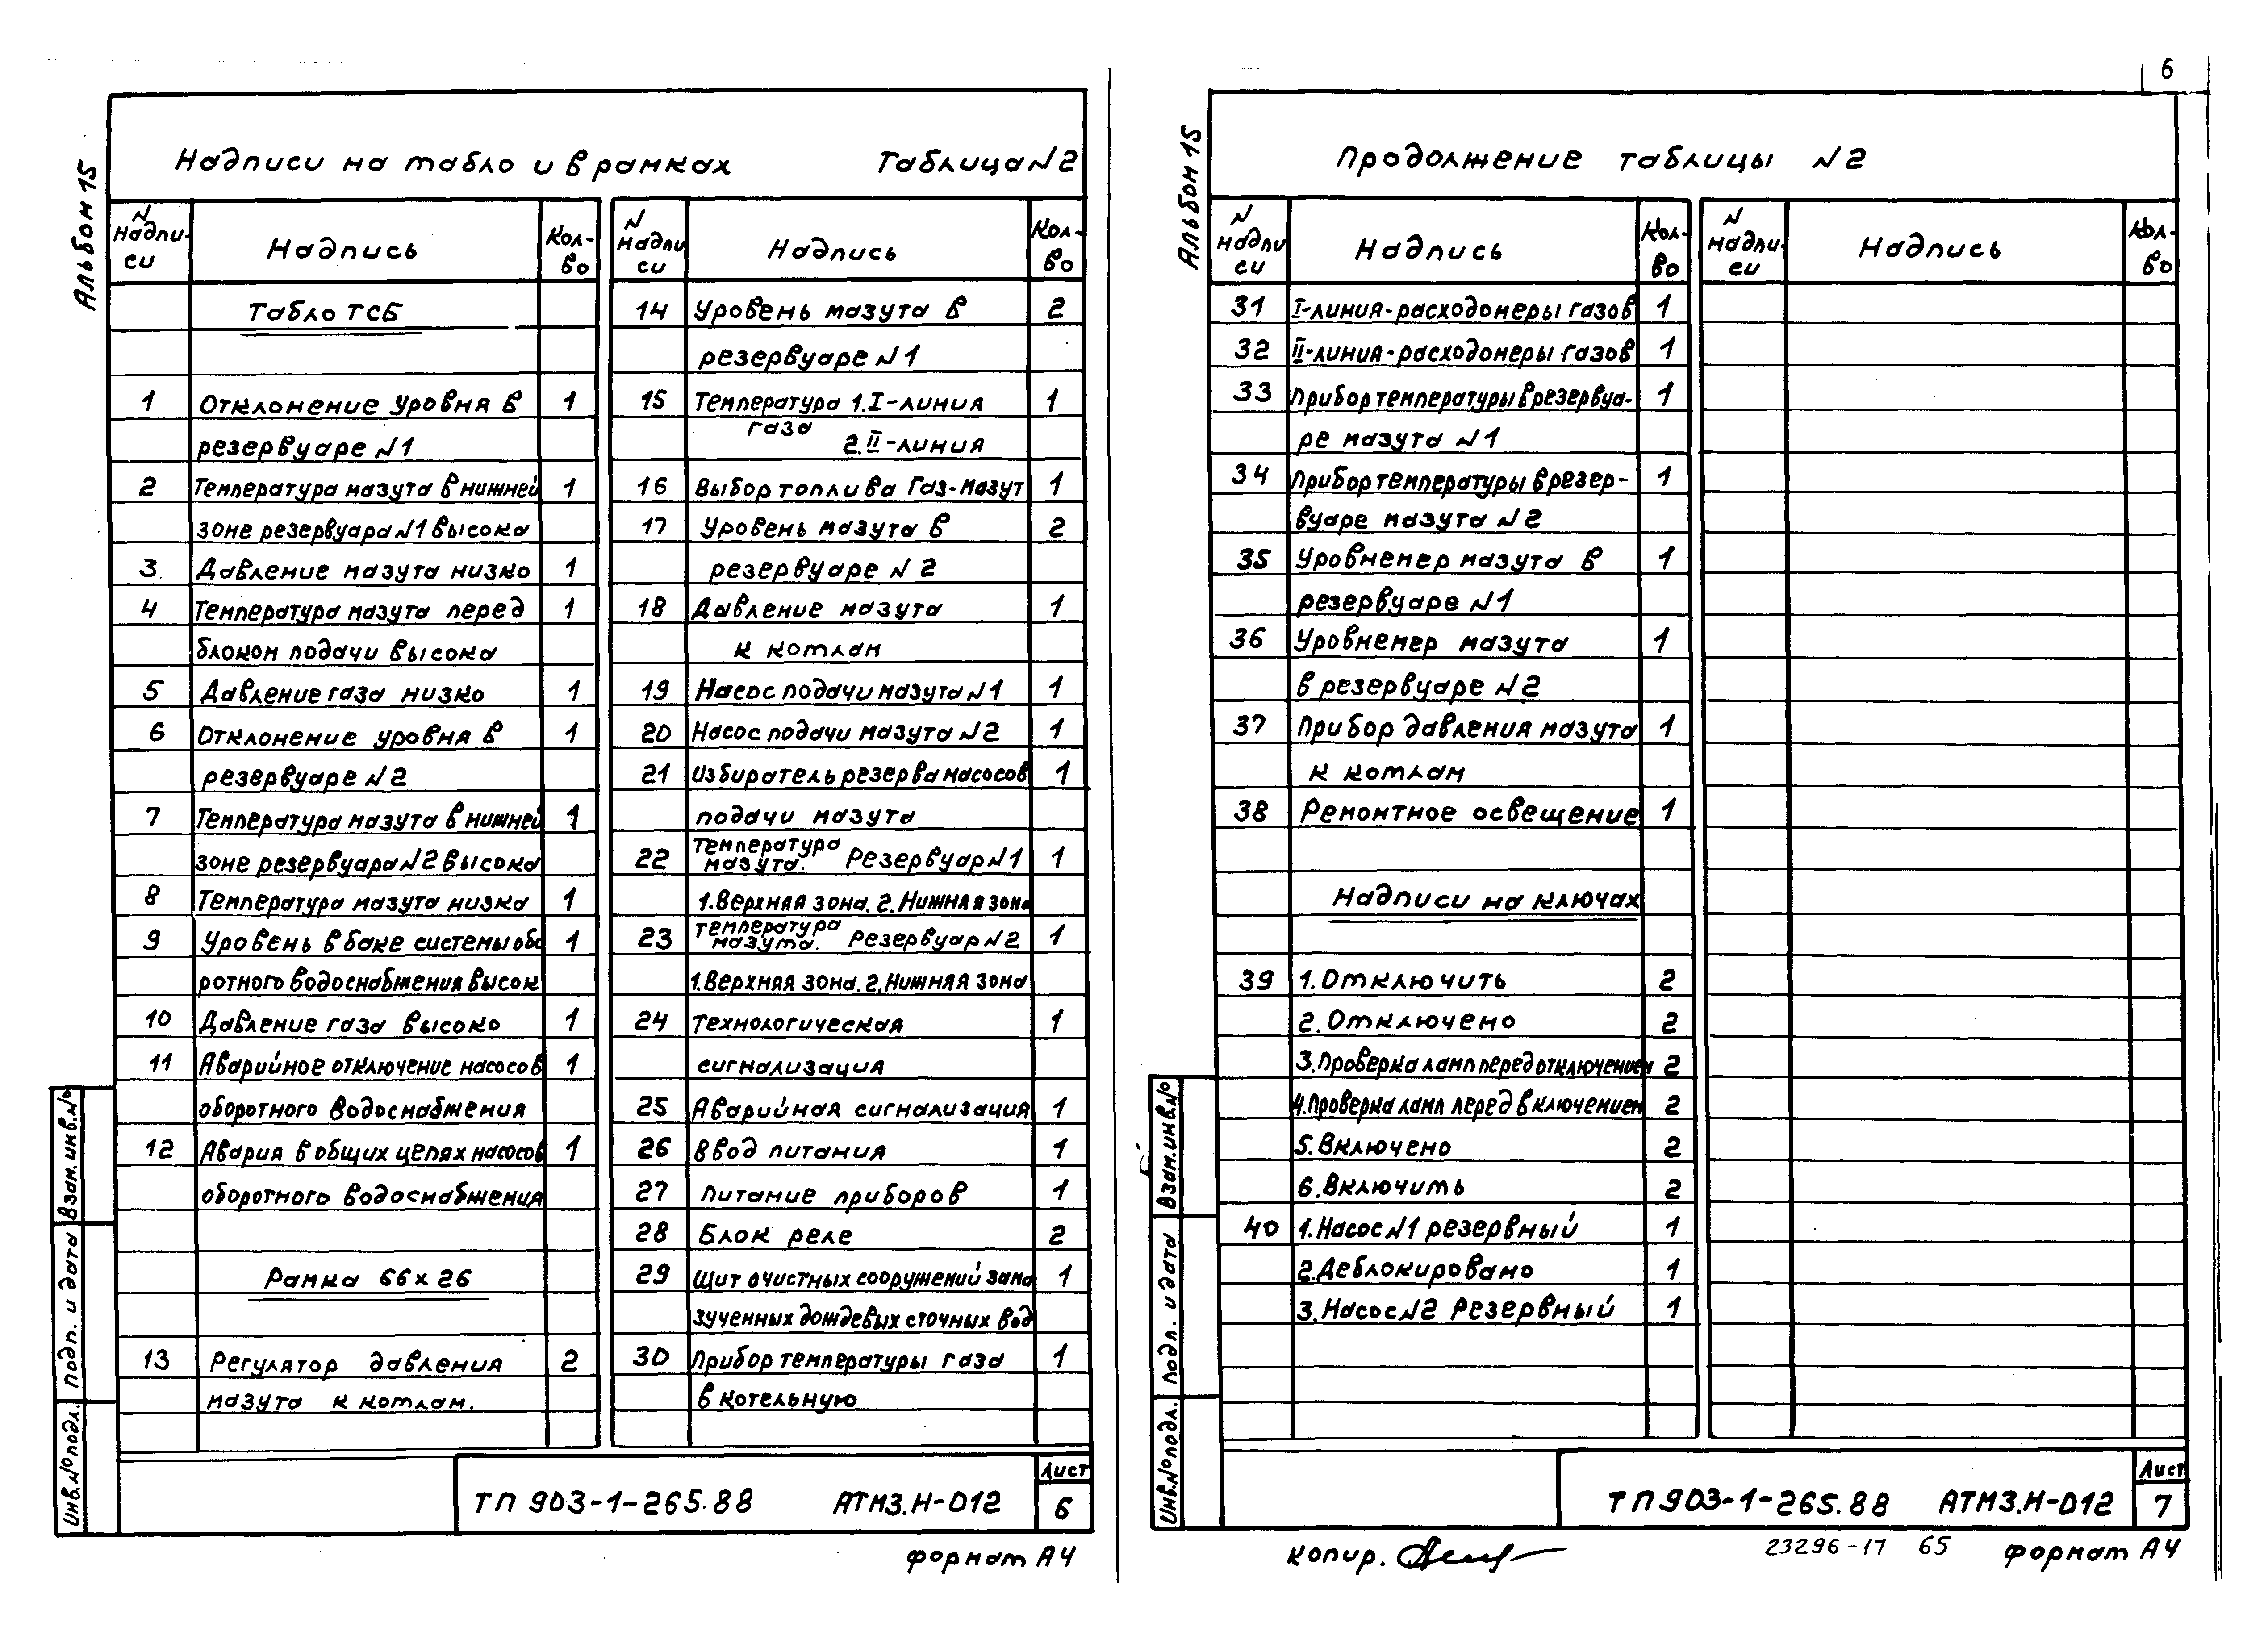 6
Альбом 15
Надписи на табло и в рамках Таблица N2
N надписи Надпись Кол-во
Табло ТСБ
1 Отклонение уровня в 1
резервуаре N1
2 Температура мазута в нижней 1
зоне резервуара N1 высока
3 Давление мазута низко 1
4 Температура мазута перед 1
блоком подачи высока
5 Давление газа низко 1
6 Отклонение уровня в 1
резервуаре N2
7 Температура мазута в нижней 1
зоне резервуара N2 высока
8 Температура мазута низка 1
9 Уровень в баке системы обо 1
ротного водоснабжения высок
10 Давление газа высоко 1
11 Аварийное отключение насосов 1
оборотного водоснабжения
12 Авария в общих цепях насосов 1
оборотного водоснабжения
Рамка 66x26
13 Регулятор давления 2
мазута к котлам.
N надписи Надпись Кол-во
14 Уровень мазута в 2
резервуаре N1
15 Температура 1.I-линия 1
газа 2.II-линия
16 Выбор топлива Газ-мазут 1
17 Уровень мазута в 2
резервуаре N2
18 Давление мазута 1
к котлам
19 Насос подачи мазута N1 1
20 Насос подачи мазута N2 1
21 Избиратель резерва насосов 1
подачи мазута
22 Температура мазута. Резервуар N1 1
1.Верхняя зона. 2.Нижняя зона
23 Температура мазута. Резервуар N2 1
1.Верхняя зона. 2.Нижняя зона
24 Технологическая 1
сигнализация
25 Аварийная сигнализация 1
26 Ввод питания 1
27 Питание приборов 1
28 Блок реле 2
29 Щит очистных сооружений зама 1
зученных дождевых сточных вод
30 Прибор температуры газа 1
в котельную
Взам.инв.№
Подп. и дата
Инв.№подл.
ТП 903-1-265.88 АТМ3.Н-012
Лист
6
формат А4
Альбом 15
Продолжение таблицы N2
N надписи Надпись Кол-во
31 I-линия-расходомеры газов 1
32 II-линия-расходомеры газов 1
33 Прибор температуры в резервуа- 1
ре мазута N1
34 Прибор температуры в резер- 1
вуаре мазута N2
35 Уровнемер мазута в 1
резервуаре N1
36 Уровнемер мазута 1
в резервуаре N2
37 Прибор давления мазута 1
к котлам
38 Ремонтное освещение 1
Надписи на ключах
39 1.Отключить 2
2.Отключено 2
3.Проверка ламп перед отключением 2
4.Проверка ламп перед включением 2
5.Включено 2
6.Включить 2
40 1.Насос N1 резервный 1
2.Деблокировано 1
3.Насос N2 резервный 1
N надписи Надпись Кол-во
Взам.инв.№
Подп. и дата
Инв.№подл.
ТП 903-1-265.88 АТМ3.Н-012
Лист
7
копир.
23296-17 65
формат А4